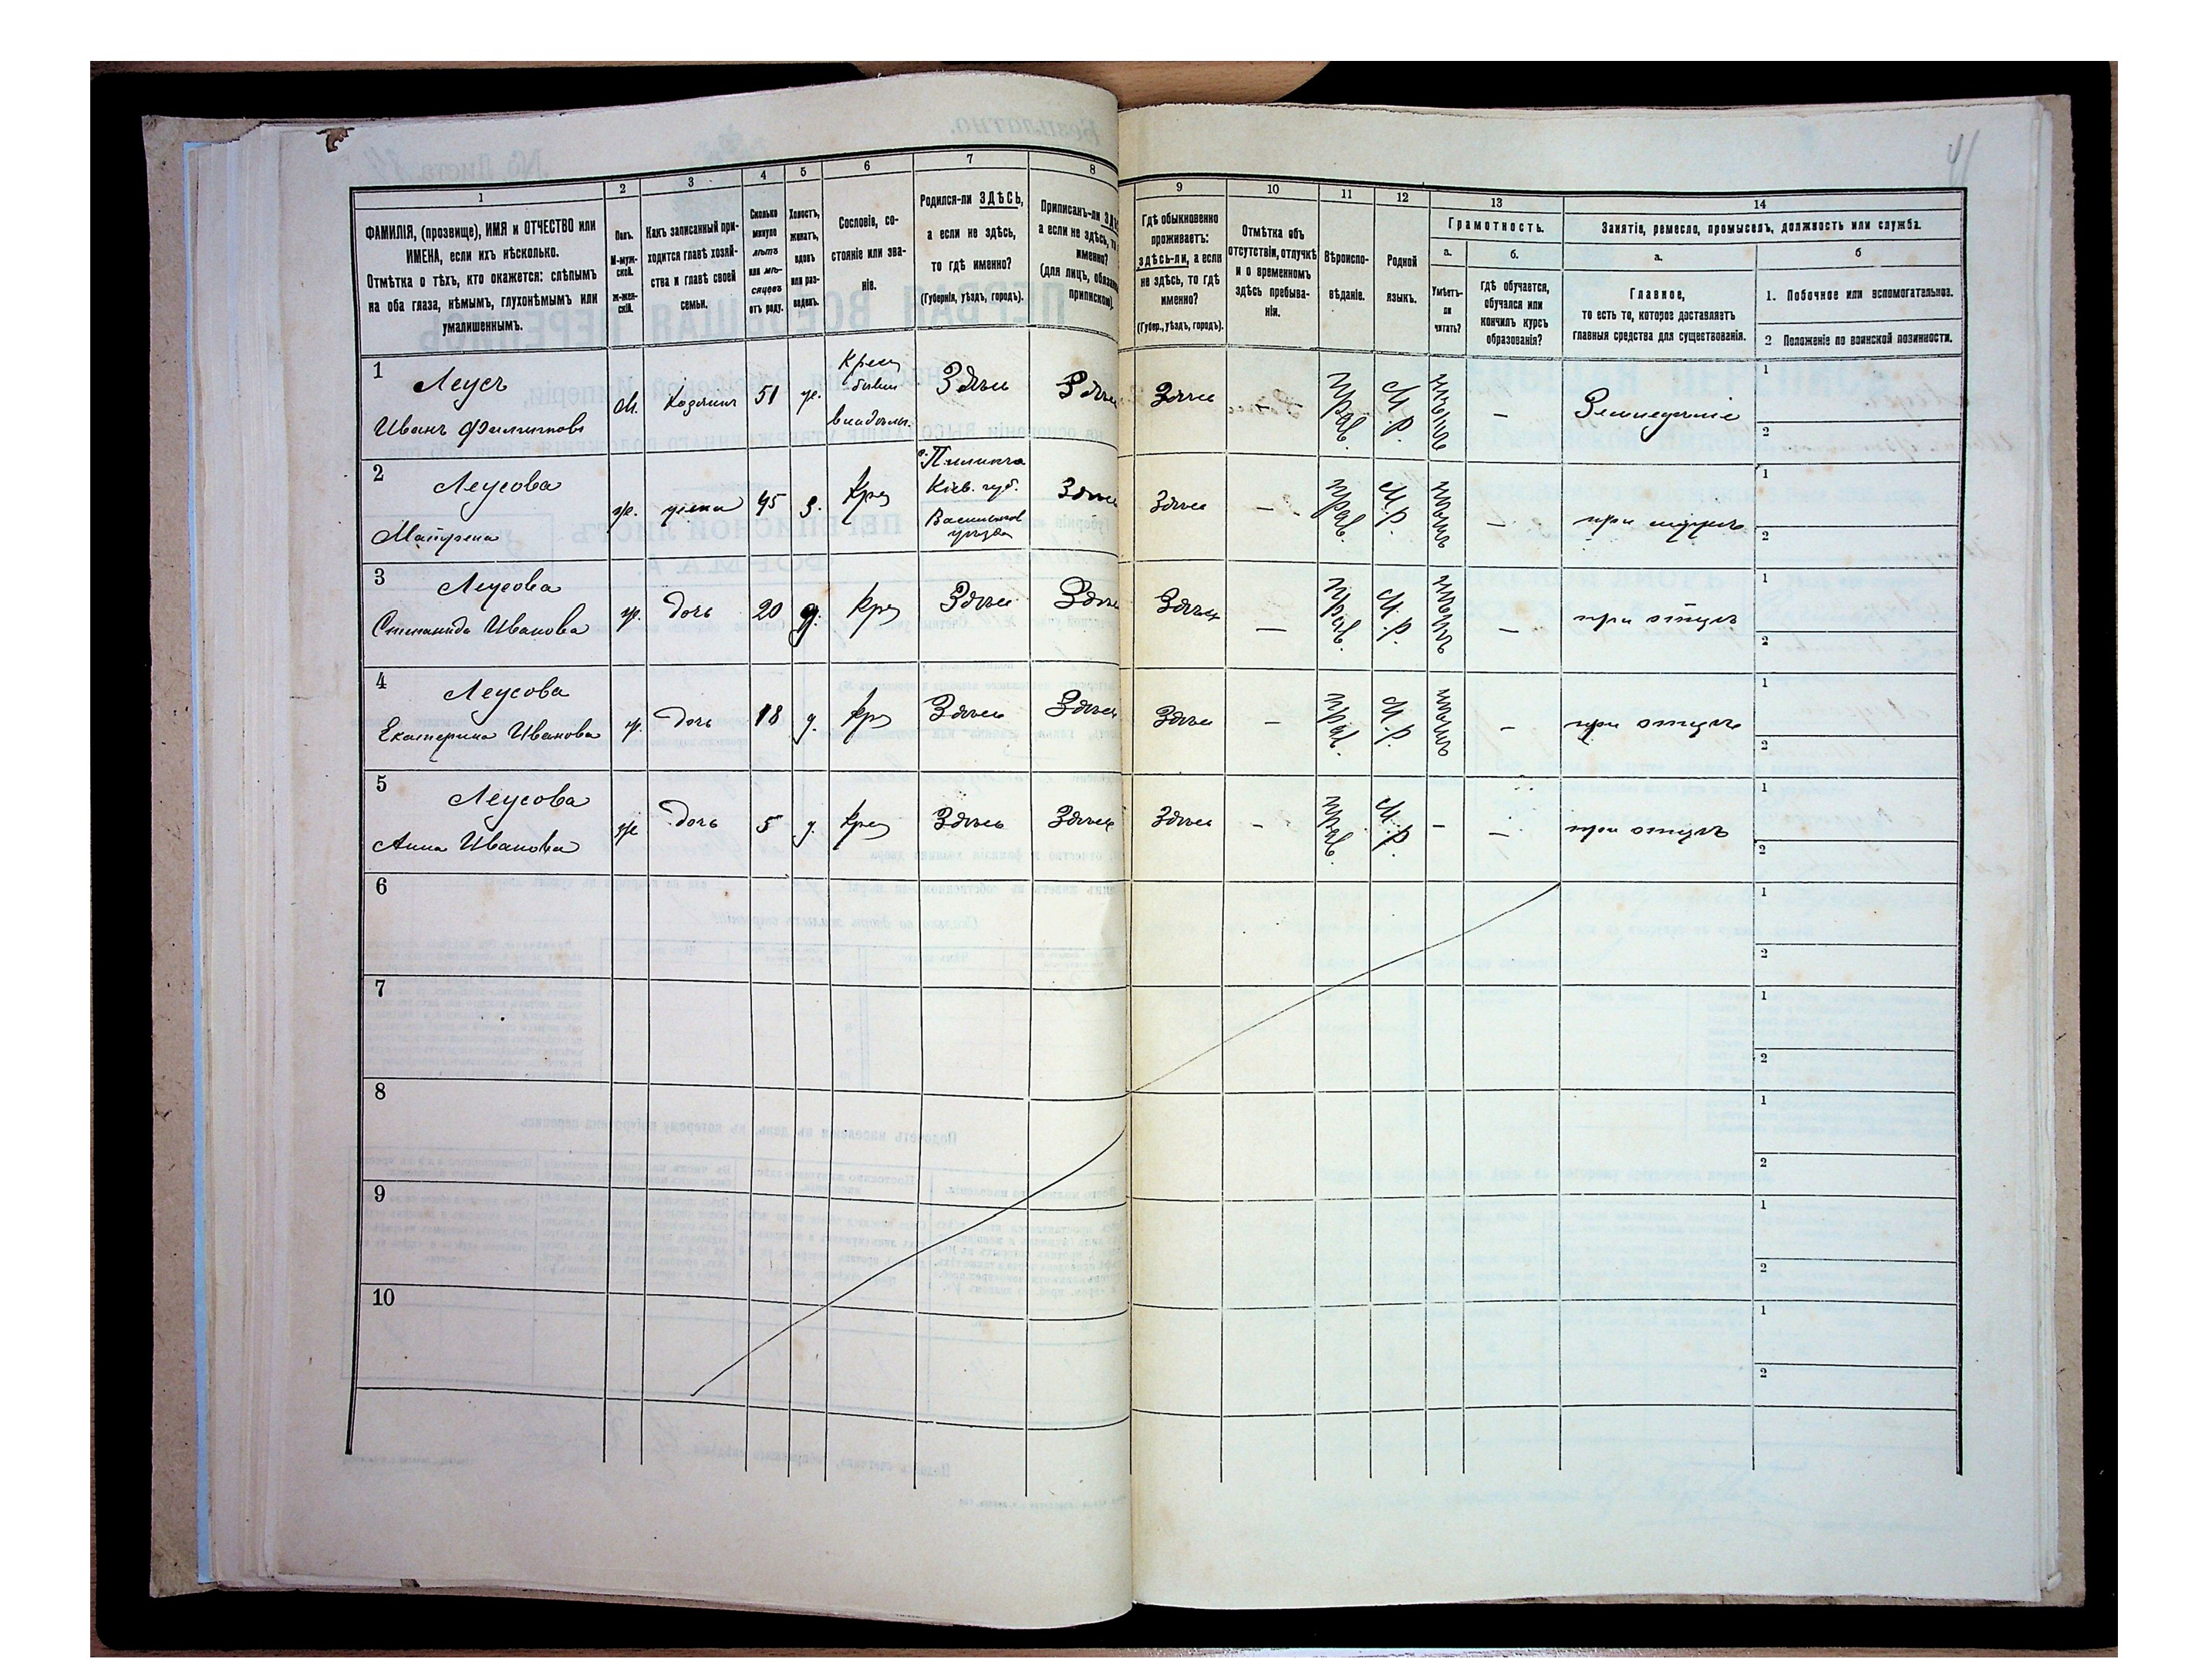 41
1
2
3
4
5
6
7
8
9
10
11
12
13
14
ФАМИЛІЯ, (прозвище), ИМЯ и ОТЧЕСТВО или
ИМЕНА, если ихъ нѣсколько.
Отмѣтка о тѣхъ, кто окажется: слѣпымъ
на оба глаза, нѣмымъ, глухонѣмымъ или
умалишеннымъ.
Полъ.
М-муж-
ской.
Ж-жен-
скій.
Какъ записанный при-
ходится главѣ хозяй-
ства и главѣ своей
семьи.
Сколько
минуло
лѣтъ
или мѣ-
сяцевъ
отъ роду.
Холостъ,
женатъ,
вдовъ
или раз-
веденъ.
Сословіе, со-
стояніе или зва-
ніе.
Родился-ли ЗДѢСЬ,
а если не здѣсь,
то гдѣ именно?
(Губернія, уѣздъ, городъ).
Приписанъ-ли
а если не здѣсь,
именно?
(для лицъ,
припискою).
Гдѣ обыкновенно
проживаетъ:
здѣсь-ли, а если
не здѣсь, то гдѣ
именно?
(Губер., уѣздъ, городъ).
Отмѣтка объ
отсутствіи, отлучкѣ
и о временномъ
здѣсь пребыва-
ніи.
Вѣроиспо-
вѣданіе.
Родной
языкъ.
Грамотность.
а.
Умѣетъ-
ли
читать?
б.
гдѣ обучается,
обучался или
кончилъ курсъ
образованія?
Занятіе, ремесло, промыселъ, должность или служба.
а.
Главное,
то есть то, которое доставляетъ
главныя средства для существованія.
б
1. Побочное или вспомогательное.
2 Положеніе по воинской повинности.
1
Леусъ
Иванъ Филиповъ
М. Хозяинъ 51 ж. Крест бывш владѣльч Здѣсь Здѣсь Здѣсь Прав. М.Р. — Земледѣліе
1
2
2
Леусова
Матрена
ж. жена 45 з. Крес Кіев. губ. Васильков уѣзда Здѣсь Здѣсь — Прав. М.Р. — при мужѣ
1
2
3
Леусова
Степанида Иванова
ж. дочь 20 д. Крес Здѣсь Здѣсь Здѣсь — Прав. М.Р. — при отцѣ
1
2
4
Леусова
Екатерина Иванова
ж. дочь 18 д. Крес Здѣсь Здѣсь Здѣсь — Прав. М.Р. — при отцѣ
1
2
5
Леусова
Анна Иванова
ж. дочь 5 д. Крес Здѣсь Здѣсь Здѣсь — Прав. М.Р. — — при отцѣ
1
2
6
1
2
7
1
2
8
1
2
9
1
2
10
1
2